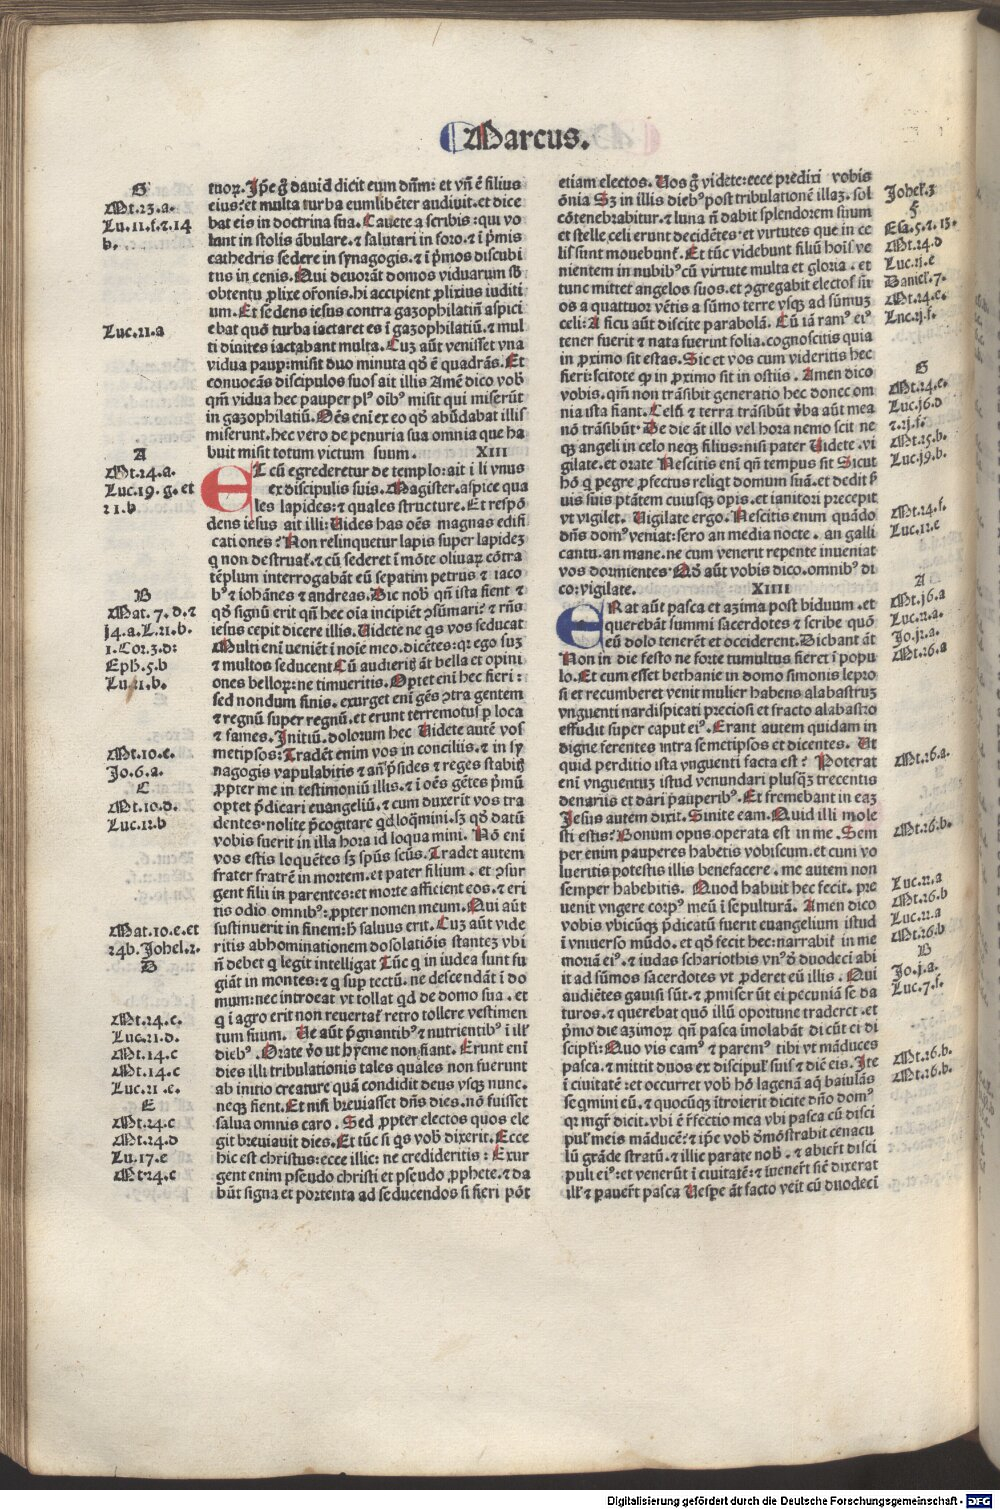 Marcus.
G
Mt.23.a.
Lu.11.f.⁊.14
b.
Luc.21.a
A
Mt.24.a.
Luc.19.g.et
21.b
B
Mat.7.d.⁊
j4.a.L.21.b.
1.Cor.3.d:
Eph.5.b
Lu.21.b.
Mt.10.e.
Jo.6.a.
C
Mt.10.d.
Luc.12.b
Mat.10.e.et
24b.Johel.2.
D
Mt.24.c.
Luc.21.d.
Mt.14.c
Mt.14.c
Luc.21.e.
E
Mt.24.c
Mt.24.d
Lu.17.e
Mt24.c
tuoꝝ. Ip̄e g̊ dauid dicit eum dn̄m: et vn̄ ē filius
eius? et multa turba eum libēter audiuit. et dice
bat eis in doctrina sua. Cauete a scribis: qui vo
lunt in stolis ābulare. ⁊ salutari in foro. ⁊ i p̄mis
cathedris sedere in synagogis. ⁊ i p̄mos discubi
tus in cenis. Qui deuorāt domos viduarum sb̄
obtentu ꝓlixe or̄onis. hi accipient ꝓlixius iuditi
um. Et sedens iesus contra gazophilatiū aspici
ebat quō turba iactaret es i gazophilatiū. ⁊ mul
ti diuites iactabant multa. Cuꝫ aūt venisset vna
vidua paup: misit duo minuta qd̄ ē quadrās. Et
conuocās discipulos suos ait illis Amē dico vob̄
qm̄ vidua hec pauper plꝰ oībꝰ misit qui miserūt
in gazophilatiū. Oēs eni ex eo qd̄ abūdabat illis
miserunt. hec vero de penuria sua omnia que ha
buit misit totum victum suum. XIII
ET cū egrederetur de templo: ait i li vnus
ex discipulis suis. Magister. aspice qua
les lapides: ⁊ quales structure. Et respō
dens iesus ait illi: Uides has oēs magnas edifi
cationes? Non relinquetur lapis super lapideꝫ
q̄ non destruat̄. ⁊ cū sederet i mōte oliuaꝝ cōtra
tēplum interrogabāt eū sepatim petrus ⁊ iaco
bꝰ ⁊ iohānes ⁊ andreas. Dic nob̄ qn̄ ista fient ⁊
qd̄ signū erit qn̄ hec oīa incipiēt ꝯsūmari? ⁊ rn̄s
iesus cepit dicere illis. Uidete ne qs vos seducat
Multi eni veniēt i noīe meo. dicētes: qr ego suꝫ
⁊ multos seducent Cū audieritis āt bella et opini
ones belloꝝ: ne timueritis. Optet eni hec fieri:
sed nondum finis. exurget eni gēs ꝯtra gentem
⁊ regnū super regnū. et erunt terremotus ꝑ loca
⁊ fames. Initiū. dolorum hec Uidete autē vos
metipsos: Tradēt enim vos in conciliis. ⁊ in sy
nagogis vapulabitis ⁊ an̄ p̄sides ⁊ reges stabitꝭ
ꝓpter me in testimoniū illis. ⁊ i oēs gētes p̄mū
optet p̄dicari euangeliū. ⁊ cum duxerit vos tra
dentes. nolite p̄cogitare qd loqmini. sꝫ qd̄ datū
vobis fuerit in illa hora id loqua mini. Nō eni
vos estis loquētes sꝫ spūs scūs. Tradet autem
frater fratrē in mortem. et pater filium. et ꝯsur
gent filii in parentes: et morte afficient eos. ⁊ eri
tis odio omnibꝰ: ꝓpter nomen meum. Qui aūt
sustinuerit in finem: h̄ saluus erit. Cuꝫ aūt vide
ritis abhominationem dosolatiōis stanteꝫ vbi
n̄ debet q̄ legit intelligat Tūc q̄ in iudea sunt fu
giāt in montes: ⁊ q sup tectū. ne descendāt i do
mum: nec introeat vt tollat qd de domo sua. et
q i agro erit non reuertat̄ retro tollere vestimen
tum suum. Ue aūt p̄gnantibꝰ ⁊ nutrientibꝰ i ill̄
diebꝰ. Orate v̄o ut hyeme non fiant. Erunt eni
dies illi tribulationis tales quales non fuerunt
ab initio creature quā condidit deus vsqꝫ nunc.
neqꝫ fient. Et nisi breuiasset dn̄s dies. nō fuisset
salua omnis caro. Sed ꝓpter electos quos ele
git breuiauit dies. Et tūc si qs vob̄ dixerit. Ecce
hic est christus: ecce illic: ne credideritis: Exur
gent enim pseudo christi et pseudo ꝓphete. ⁊ da
būt signa et portenta ad seducendos si fieri pōt
etiam electos. Uos g̊ videte: ecce predixi vobis
ōnia Sꝫ in illis diebꝰ post tribulationē illaꝫ. sol
cōtenebrabitur. ⁊ luna n̄ dabit splendorem suum
et stelle celi erunt decidētes. et virtutes que in ce
lis sunt mouebunt̄. Et tūc videbunt filiū hoīs ve
nientem in nubibꝰ cū virtute multa et gloria. et
tunc mittet angelos suos. et ꝯgregabit electos sū
os a quattuor vētis a sūmo terre vsqꝫ ad sūmuꝫ
celi: A ficu aūt discite parabolā. Cū iā ramꝰ eiꝰ
tener fuerit ⁊ nata fuerunt folia. cognoscitis quia
in ꝓximo sit estas. Sic et vos cum videritis hec
fieri: scitote ꝙ in ꝓximo sit in ostiis. Amen dico
vobis. qm̄ non trāsibit generatio hec donec om
nia ista fiant. Celū ⁊ terra trāsibūt v̄ba aūt mea
nō trāsibūt. De die āt illo vel hora nemo scit ne
qꝫ angeli in celo neqꝫ filius: nisi pater Uidete. vi
gilate. et orate Nescitis eni qn̄ tempus sit Sicut
hō q̄ pegre ꝓfectus reliqt domum suā. et dedit p̄
uis suis ptātem cuiusqꝫ opis. et ianitori precepit
vt vigilet. Uigilate ergo. Nescitis enim quādo
dn̄s domꝰ veniat: sero an media nocte. an galli
cantu. an mane. ne cum venerit repente inueniat
vos dormientes. Qd̄ aūt vobis dico. omnibꝰ di
co: vigilate. XIIII
ERat aūt pasca et azima post biduum. et
querebāt summi sacerdotes ⁊ scribe quō
eū dolo tenerēt et occiderent. Dicbant āt
Non in die festo ne forte tumultus fieret i popu
lo. Et cum esset bethanie in domo simonis lepro
si et recumberet venit mulier habens alabastruꝫ
vnguenti nardispicati preciosi et fracto alabastro
effudit super caput eiꝰ. Erant autem quidam in
digne ferentes intra semetipsos et dicentes. Ut
quid perditio ista vnguenti facta est? Poterat
eni vnguentuꝫ istud venundari plusqꝫ trecentis
denariis et dari pauperibꝰ. Et fremebant in eaꝫ
Jesus autem dixit. Sinite eam. Quid illi mole
sti estis? Bonum opus operata est in me. Sem
per enim pauperes habetis vobiscum. et cum vo
lueritis potestis illis benefacere. me autem non
semper habebitis. Quod habuit hec fecit. pre
uenit vngere corpꝰ meū i sepulturā. Amen dico
vobis vbicūqꝫ p̄dicatū fuerit euangelium istud
i vniuerso mūdo. et qd̄ fecit hec: narrabit̄ in me
moriā eiꝰ. ⁊ iudas schariothis vnꝰ d̄ duodeci abi
it ad sūmos sacerdotes vt ꝓderet eū illis. Qui
audiētes gauisi sūt. ⁊ ꝓmiser̄ut ei pecuniā se da
turos. ⁊ querebat quō illū oportune traderet. et
p̄mo die azimoꝝ qn̄ pasca imolabāt di cūt ei di
scipl̄i: Quo vis eamꝰ ⁊ paremꝰ tibi vt māduces
pasca. ⁊ mittit duos ex discipul̄ suis ⁊ dic̄ eis. Ite
i ciuitatē: et occurret vob̄ hō lagenā aq̄ baiulās
seqmini eū. ⁊ quocūqꝫ itroierit dicite dn̄o domꝰ
qr mgr̄ dicit. vbi ē r̄fectio mea vbi pasca cū disci
pul̄ meis māducē: ⁊ ip̄e vob̄ d̄mōstrabit cenacu
lū grāde stratū. ⁊ illic parate nob̄. ⁊ abier̄t disci
puli eiꝰ: et venerūt i ciuitatē: ⁊ iuener̄t sic̄ dixerat
ill̄ ⁊ pauer̄t pasca Uespe āt facto veit cū duodeci
Johel.3
F
Esa.5.⁊.13.
Mt.24.d
Luc.21.e
Daniel.7.
Mt.24.c.
Luc.21.f.
G
Mt.24.e.
Luc.j6.d
⁊.21.f.
Mt.25.b.
Luc.19.b.
Mt.24.f.
Luc.12.e
A
Mt.j6.a
Luc.22.a.
Jo.j2.a.
Mt.26.a
Mt.26.a.
Mt.26.b.
Luc.22.a
Mt.26.b
Luc.22.a
Mt.26.b
B
Jo.j.a.
Luc.7.f.
Mt.26.b.
Mt.26.b.
Digitalisierung gefördert durch die Deutsche Forschungsgemeinschaft - DFG